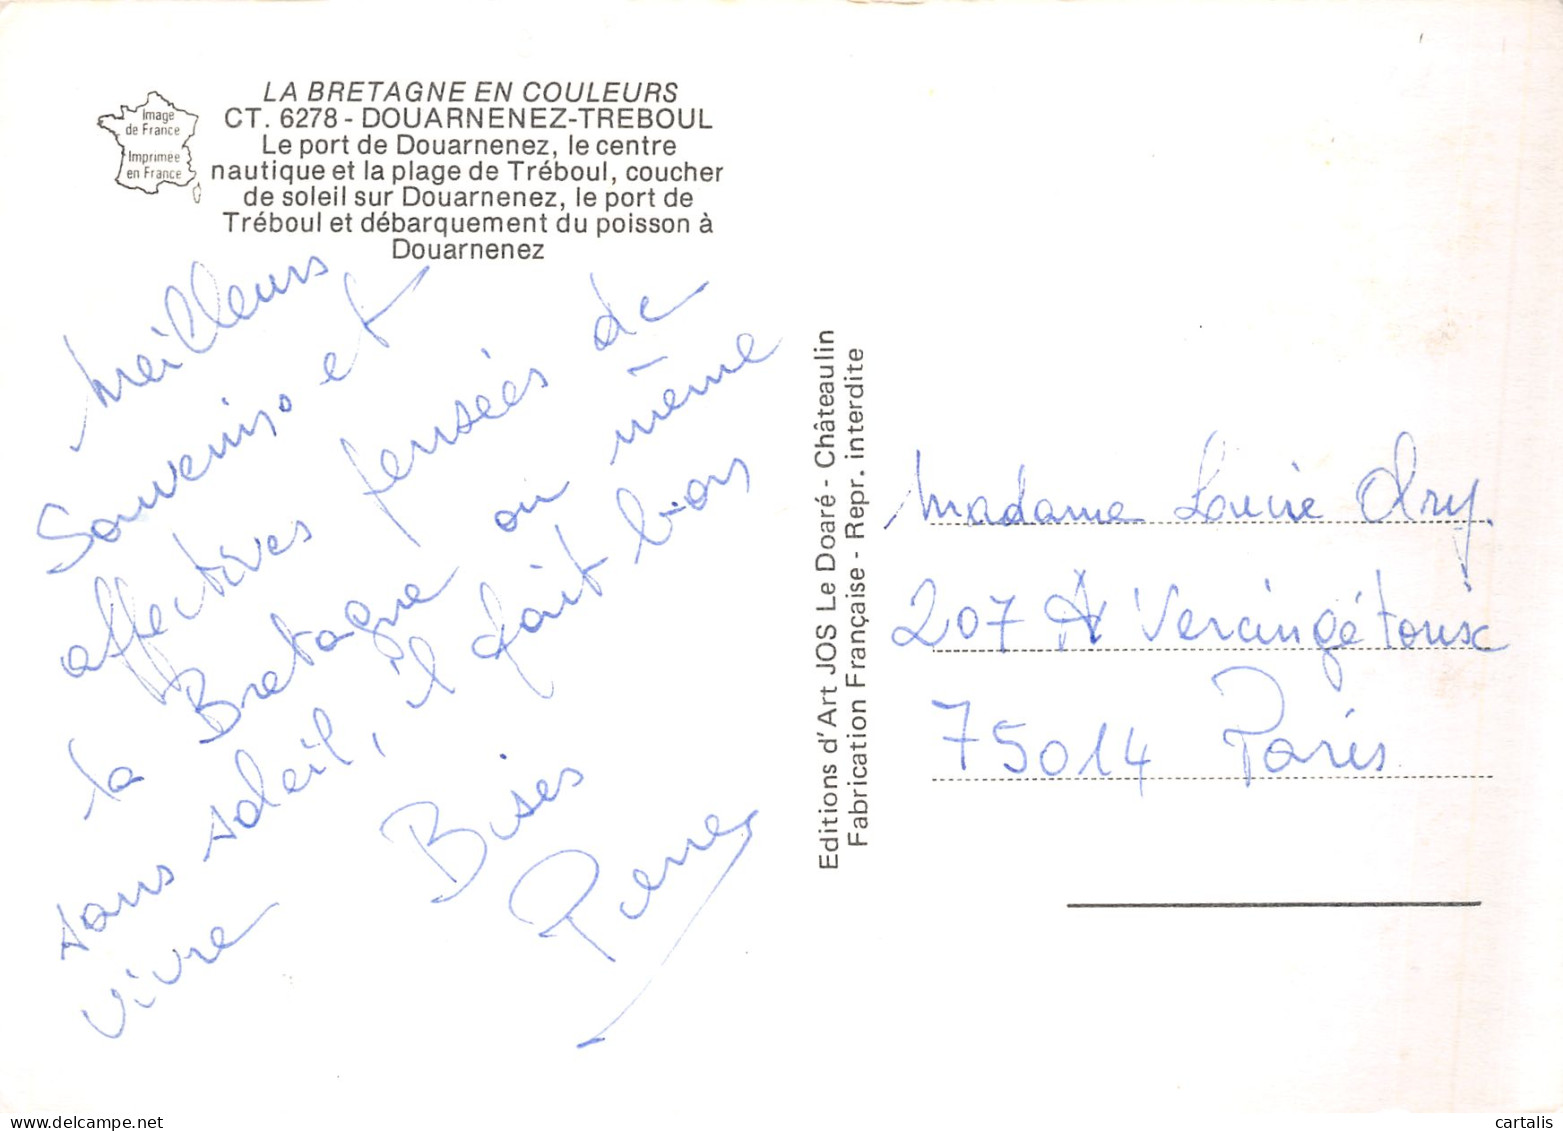 LA BRETAGNE EN COULEURS
CT. 6278 - DOUARNENEZ-TREBOUL
Le port de Douarnenez, le centre
nautique et la plage de Tréboul, coucher
de soleil sur Douarnenez, le port de
Tréboul et débarquement du poisson à
Douarnenez
Image
de France
Imprimée
en France
Meilleurs
Souvenirs et
affectives pensées de
la Bretagne où même
sans soleil, il fait bon
vivre
Bises
Pierre
Editions d'Art JOS Le Doaré - Châteaulin
Fabrication Française - Repr. interdite
Madame
207 Vercingétorix
75014 Paris
cartalis